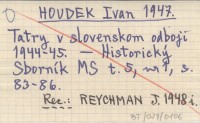 HOUDEK Ivan 1947.
Tatry v slovenskom odboji
1944-45. — Historický
Sborník MS t. 5, nr 1, s.
83-86.
Rec.: REYCHMAN J. 1948 i.
BT/029/0106